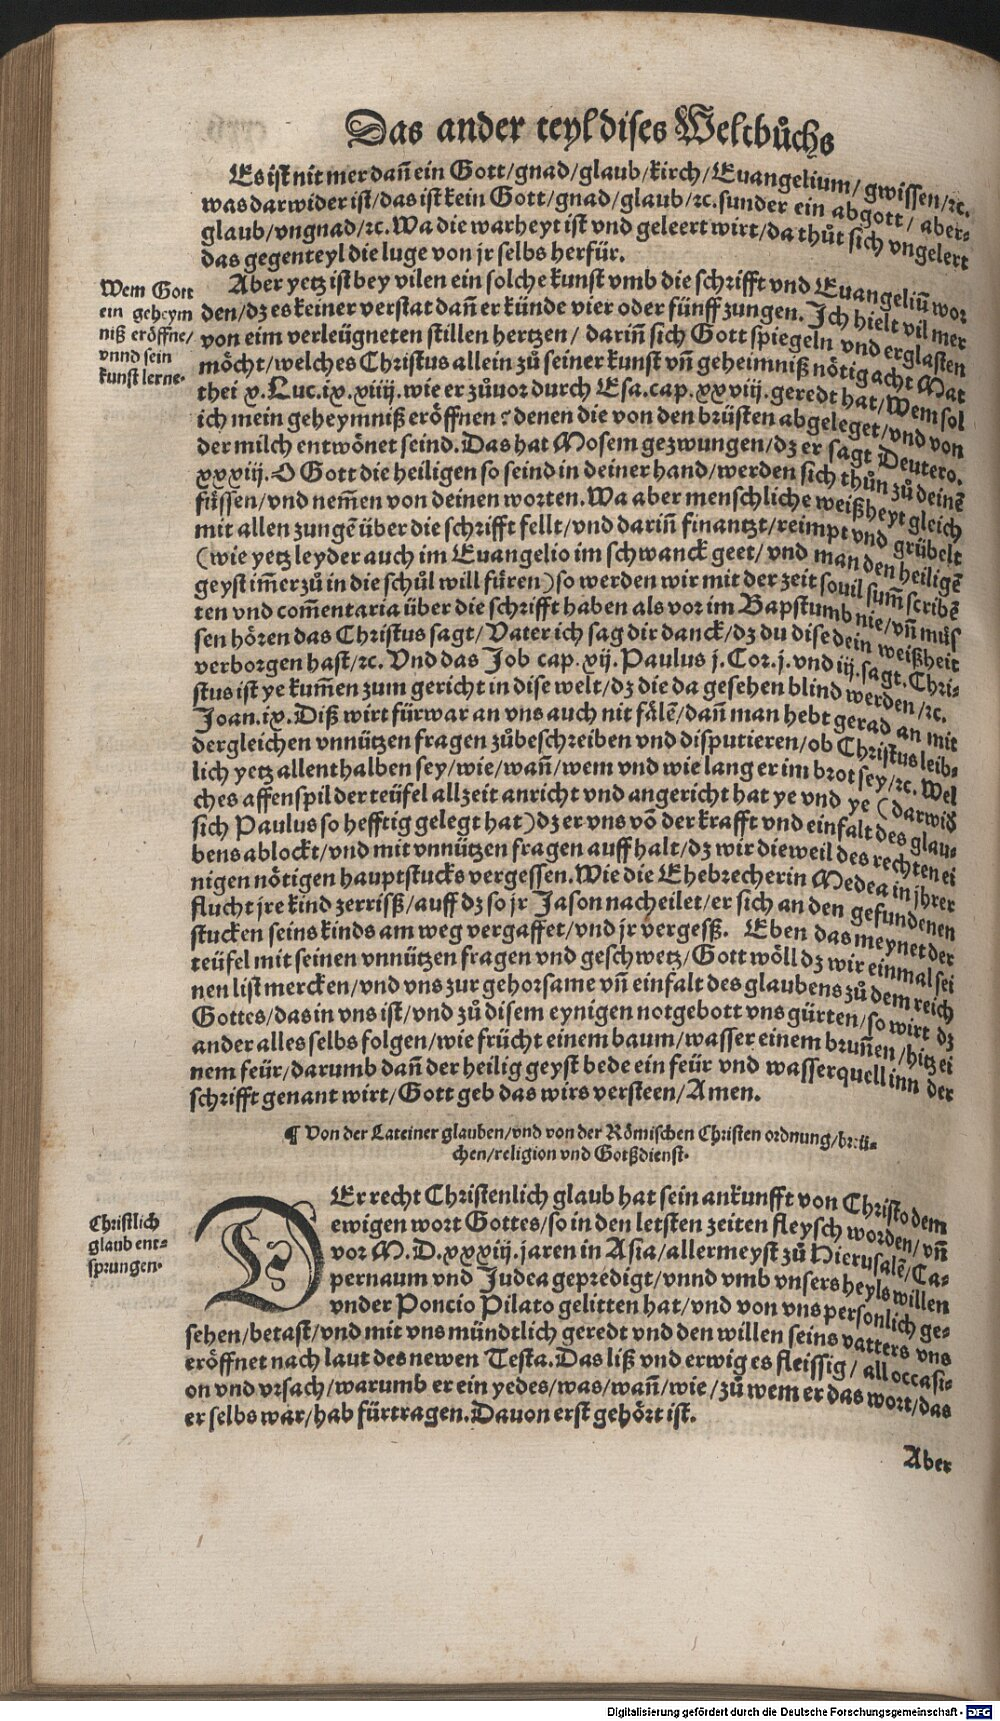 Das ander teyl dises Weltbůchs
Es ist nit mer dañ ein Gott/gnad/glaub/kirch/Euangelium/gwissen/ꝛc.
was darwider ist/das ist kein Gott/gnad/glaub/ꝛc. sunder ein abgott/aber-
glaub/vngnad/ꝛc. Wa die warheyt ist vnd geleert wirt/da thůt sich vngelert
das gegenteyl die luge von jr selbs herfür.
Wem Gott
ein geheym
niß eröffne/
vnnd sein
kunst lerne.
Aber yetz ist bey vilen ein solche kunst vmb die schrifft vnd Euangeliū wor
den/dz es keiner verstat dañ er künde vier oder fünff zungen. Ich hielt vil mer
von eim verleügneten stillen hertzen/ dariñ sich Gott spiegeln vnd erglasten
möcht/welches Christus allein zů seiner kunst vñ geheimniß nötig acht Mat
thei v. Luc.ix.xiiij. wie er zůvor durch Esa.cap.xxviij. geredt hat/Wem sol
ich mein geheymniß eröffnen? denen die von den brüsten abgeleget/vnd von
der milch entwönet seind. Das hat Mosem gezwungen/dz er sagt Deutero.
xxxiij. O Gott die heiligen so seind in deiner hand/werden sich thůn zů deinē
füssen/vnd nem̄en von deinen worten. Wa aber menschliche weißheyt gleich
mit allen zungē über die schrifft fellt/vnd dariñ finantzt/reimpt vnd grübelt
(wie yetz leyder auch im Euangelio im schwanck geet/ vnd man den heiligē
geyst im̄er zů in die schůl will füren) so werden wir mit der zeit souil sum̄ scribē
ten vnd com̄entaria über die schrifft haben als vor im Bapstumb nie/vñ můs
sen hören das Christus sagt/Vater ich sag dir danck/dz du dise dein weißheit
verborgen hast/ꝛc. Vnd das Job cap.vij. Paulus j.Cor.j.vnd iij. sagt. Chri-
stus ist ye kum̄en zum gericht in dise welt/dz die da gesehen blind werden/ꝛc.
Joan.ix. Diß wirt fürwar an vns auch nit fälē/dañ man hebt gerad an mit
dergleichen vnnützen fragen zůbeschreiben vnd disputieren/ob Christus leib-
lich yetz allenthalben sey/wie/wañ/wem vnd wie lang er im brot sey/ꝛc. Wel
ches affenspil der teüfel allzeit anricht vnd angericht hat ye vnd ye (darwid
sich Paulus so hefftig gelegt hat) dz er vns vō der krafft vnd einfalt des glau-
bens ablockt/vnd mit vnnützen fragen auff halt/dz wir dieweil des rechten ei
nigen nötigen hauptstucks vergessen. Wie die Ehebrecherin Medea in jhrer
flucht jre kind zerrisß/auff dz so jr Jason nacheilet/er sich an den gefundenen
stucken seins kinds am weg vergaffet/vnd jr vergesß. Eben das meynet der
teüfel mit seinen vnnützen fragen vnd geschwetz/Gott wöll dz wir einmal sei
nen list mercken/vnd vns zur gehorsame vñ einfalt des glaubens zů dem reich
Gottes/das in vns ist/vnd zů disem eynigen notgebott vns gürten/so wirt dz
ander alles selbs folgen/wie frücht einem baum/wasser einem bruñen/hitz ei
nem feür/darumb dañ der heilig geyst bede ein feür vnd wasserquell inn der
schrifft genant wirt/Gott geb das wirs versteen/Amen.
¶ Von der Lateiner glauben/vnd von der Römischen Christen ordnung/breü-
chen/religion vnd Gotßdienst.
Christlich
glaub ent-
sprungen.
DEr recht Christenlich glaub hat sein ankunfft von Christo dem
ewigen wort Gottes/so in den letsten zeiten fleysch worden/vñ
vor M.D.xxxiij. jaren in Asia/allermeyst zů Hierusalē/Ca-
pernaum vnd Judea gepredigt/vnnd vmb vnsers heyls willen
vnder Poncio Pilato gelitten hat/vnd von vns personlich ge-
sehen/betast/vnd mit vns mündtlich geredt vnd den willen seins vatters vns
eröffnet nach laut des newen Testa. Das liß vnd erwig es fleissig/ all occasi-
on vnd vrsach/warumb er ein yedes/was/wañ/wie/zů wem er das wort/das
er selbs war/hab fürtragen. Dauon erst gehört ist.
Aber
Digitalisierung gefördert durch die Deutsche Forschungsgemeinschaft - DFG